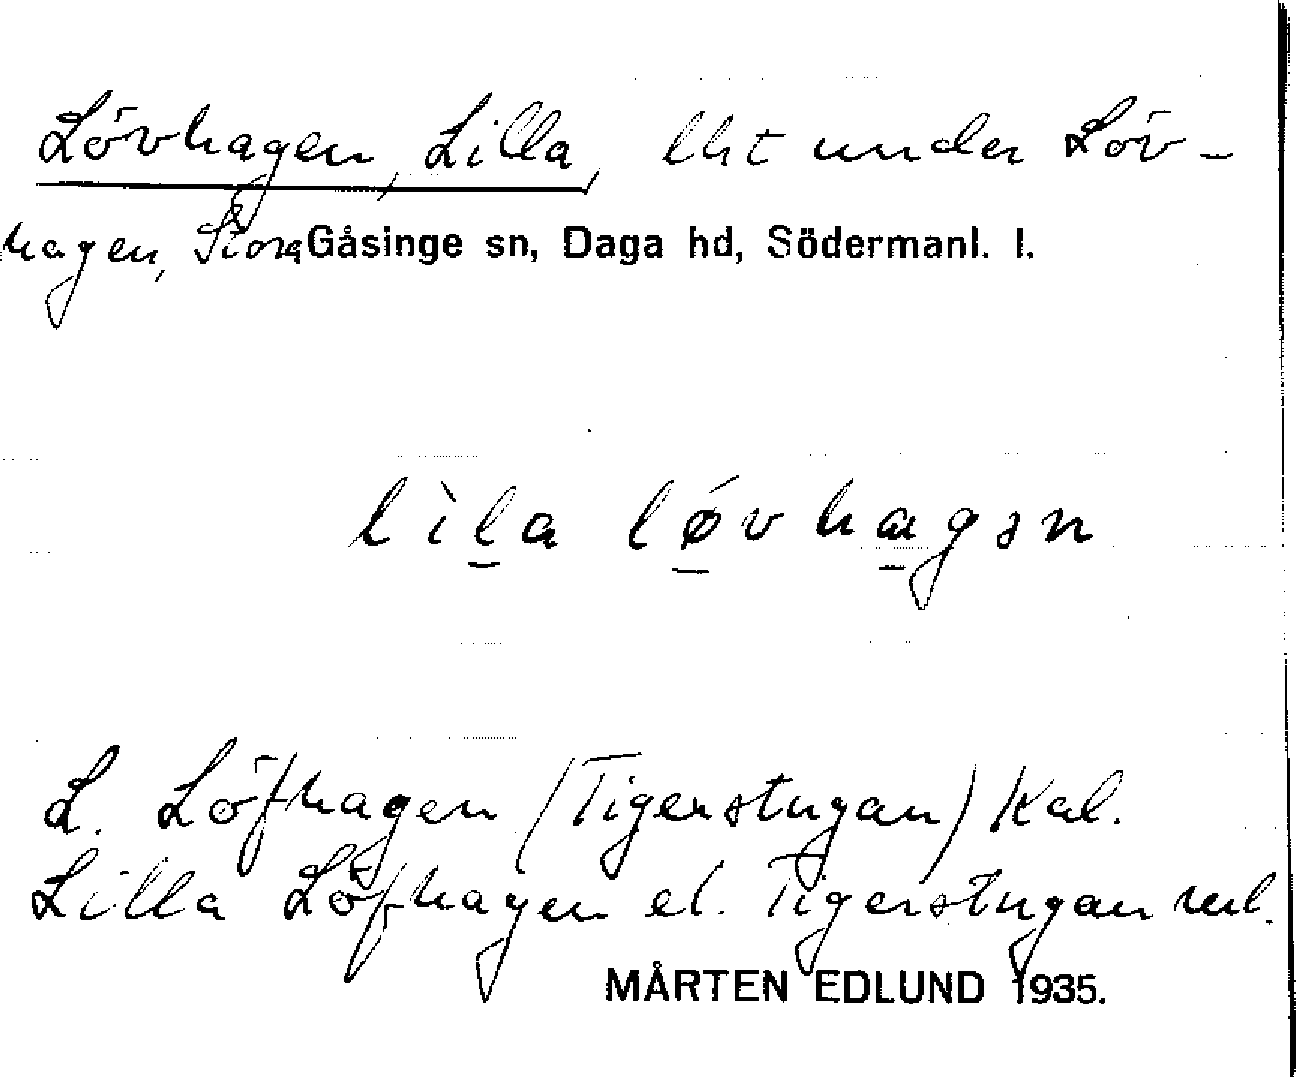 Lövhagen, Lilla, lht under Löv-
hagen, Stora Gåsinge sn, Daga hd, Södermanl. l.
lìla lǿvhagən
L. Löfhagen (Tigerstugan) Kal.
Lilla Löfhagen el. Tigerstugan
MÅRTEN EDLUND 1935.